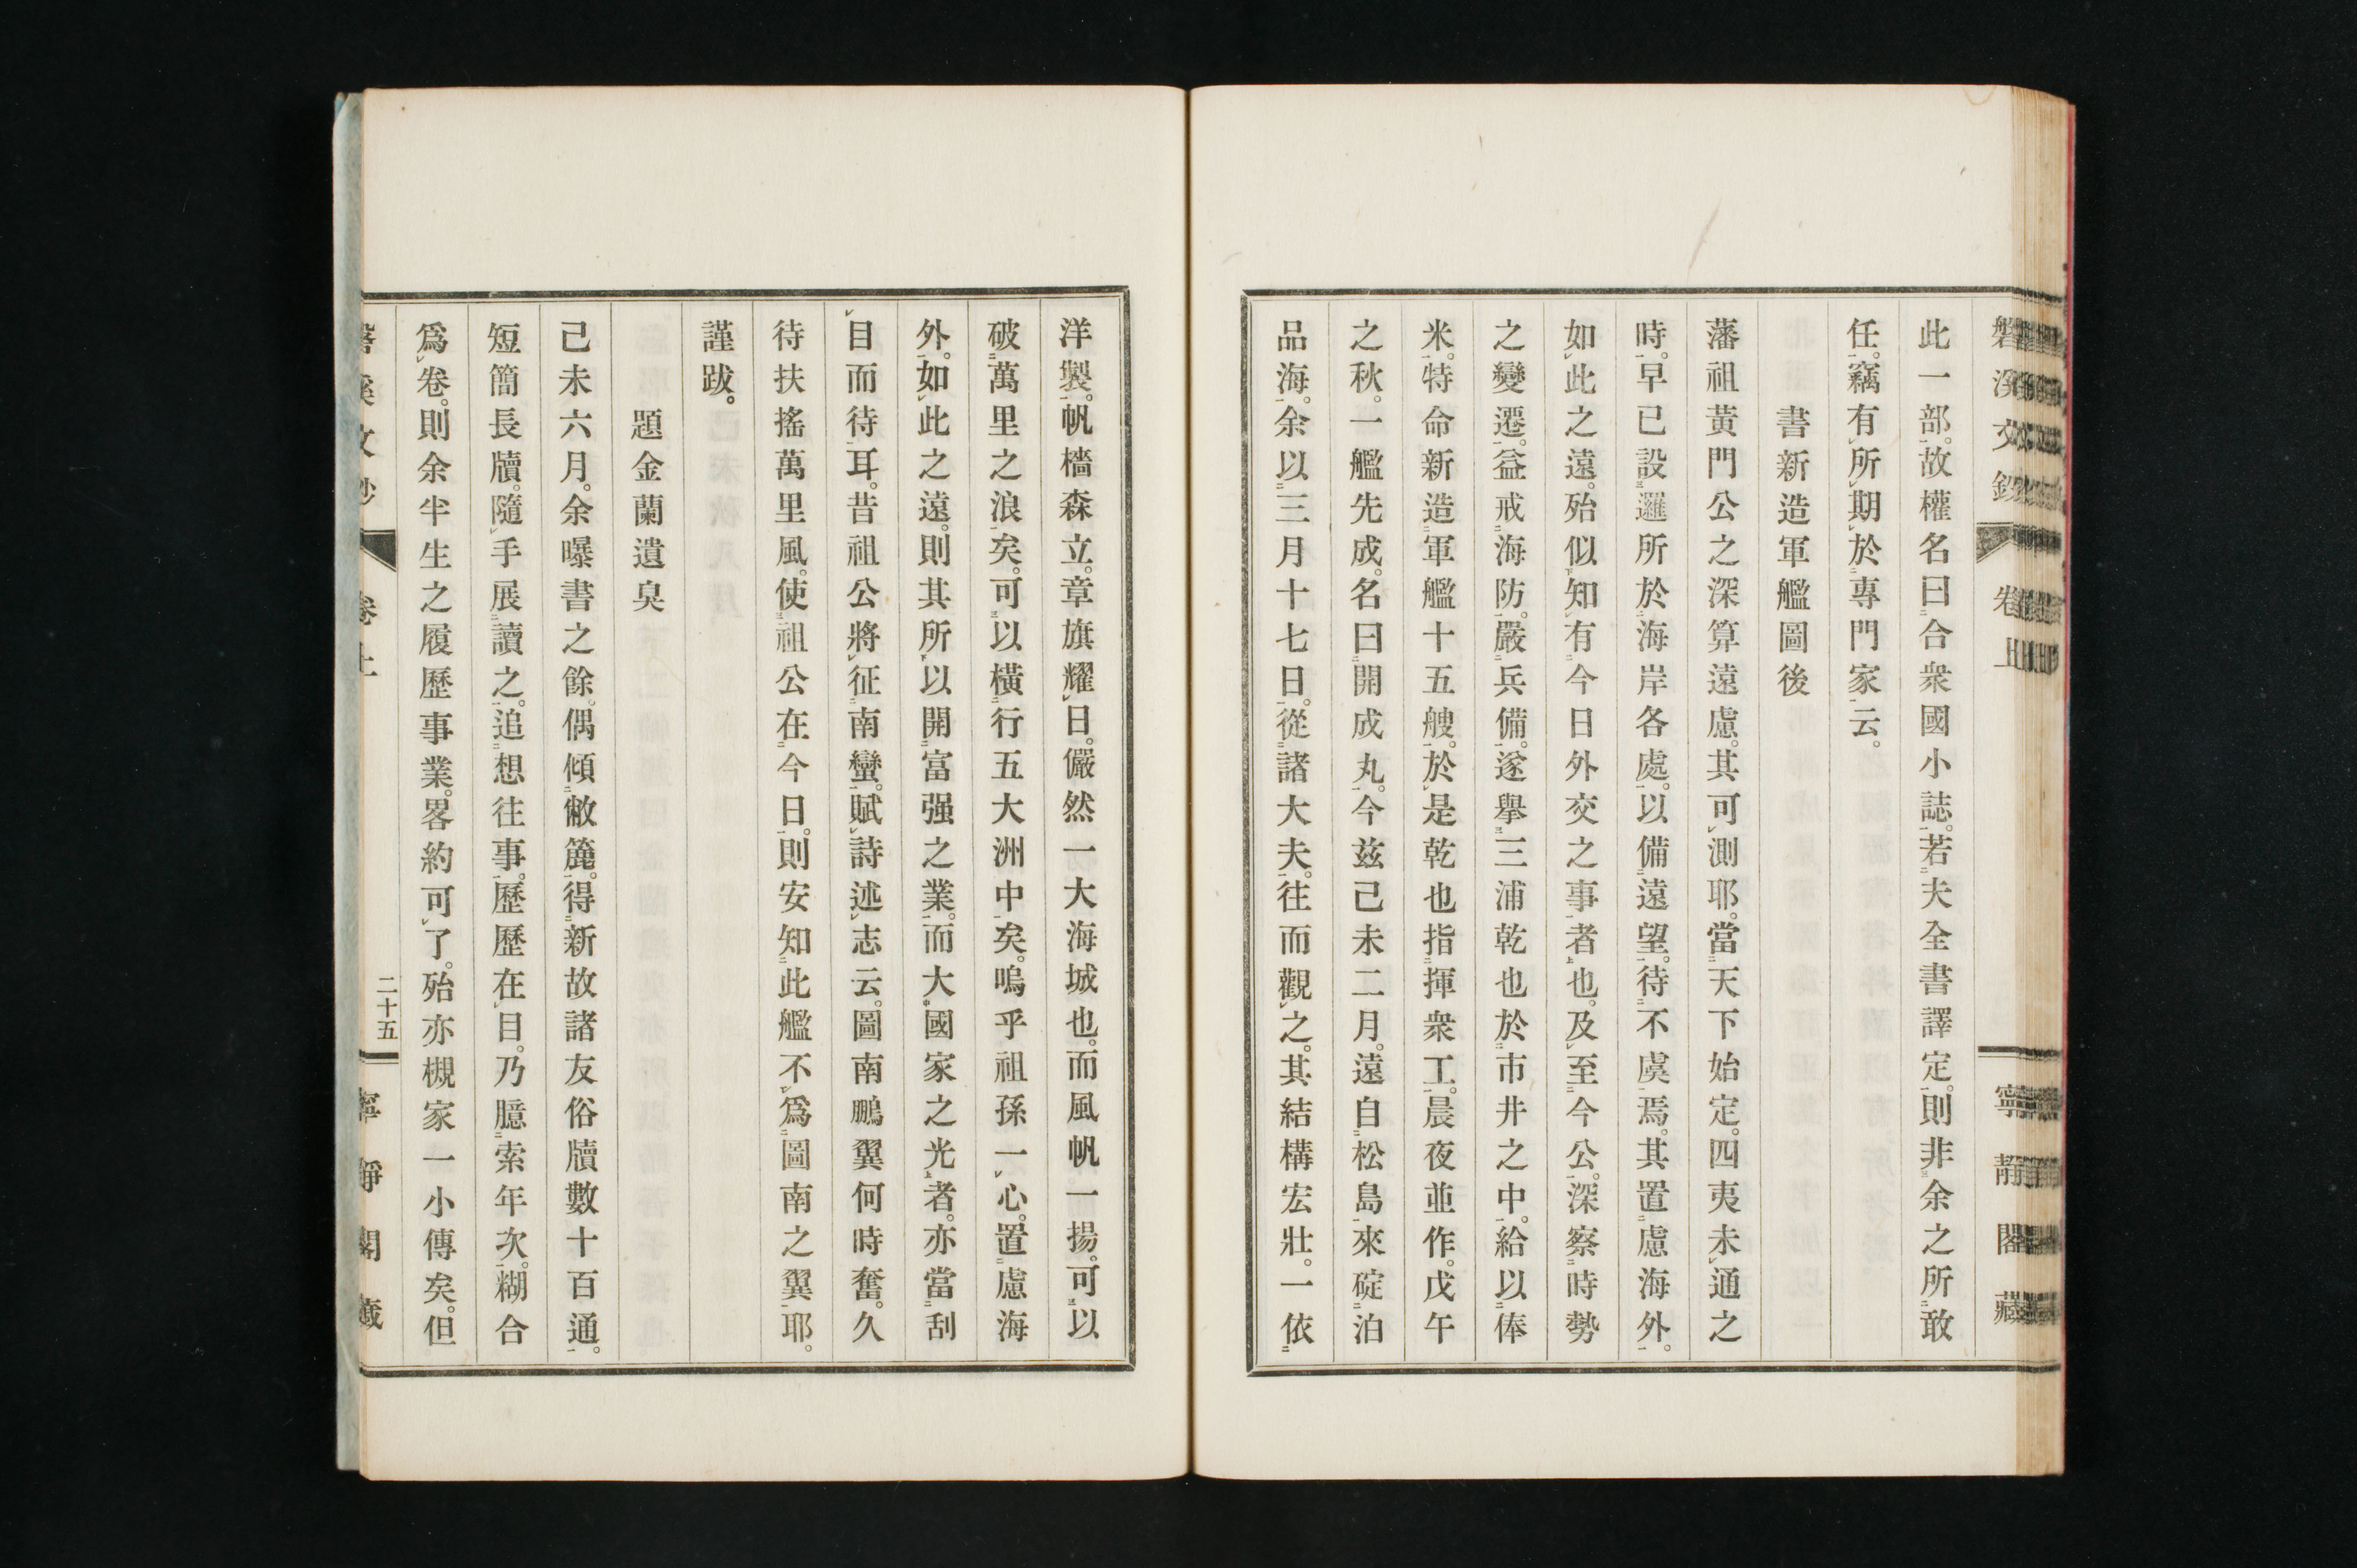 磐溪文鈔 卷上 寧靜閣藏
此一部。故權名曰合衆國小誌。若夫全書譯定。則非余之所敢
任。竊有所期於專門家云。
書新造軍艦圖後
藩祖黄門公之深算遠慮。其可測耶。當天下始定。四夷未通之
時。早已設邏所於海岸各處。以備遠望。待不虞焉。其置慮海外。
如此之遠。殆似知有今日外交之事者也。及至今公。深察時勢
之變遷。益戒海防。嚴兵備。遂擧三浦乾也於市井之中。給以俸
米。特命新造軍艦十五艘。於是乾也指揮衆工。晨夜並作。戊午
之秋。一艦先成。名曰開成丸。今玆己未二月。遠自松島來碇泊
品海。余以三月十七日。從諸大夫。往而觀之。其結構宏壯。一依
洋製。帆檣森立。章旗耀日。儼然一大海城也。而風帆一揚。可以
破萬里之浪矣。可以橫行五大洲中矣。嗚乎祖孫一心。置慮海
外。如此之遠。則其所以開富强之業。而大國家之光者。亦當刮
目而待耳。昔祖公將征南蠻。賦詩述志云。圖南鵬翼何時奮。久
待扶搖萬里風。使祖公在今日。則安知此艦不爲圖南之翼耶。
謹跋。
題金蘭遺臭
己未六月。余曝書之餘。偶傾敝簏。得新故諸友俗牘數十百通。
短簡長牘。隨手展讀之。追想往事。歷歷在目。乃臆索年次。糊合
爲卷。則余半生之履歷事業。畧約可了。殆亦槻家一小傳矣。但
磐溪文鈔 卷上 二十五 寧靜閣藏